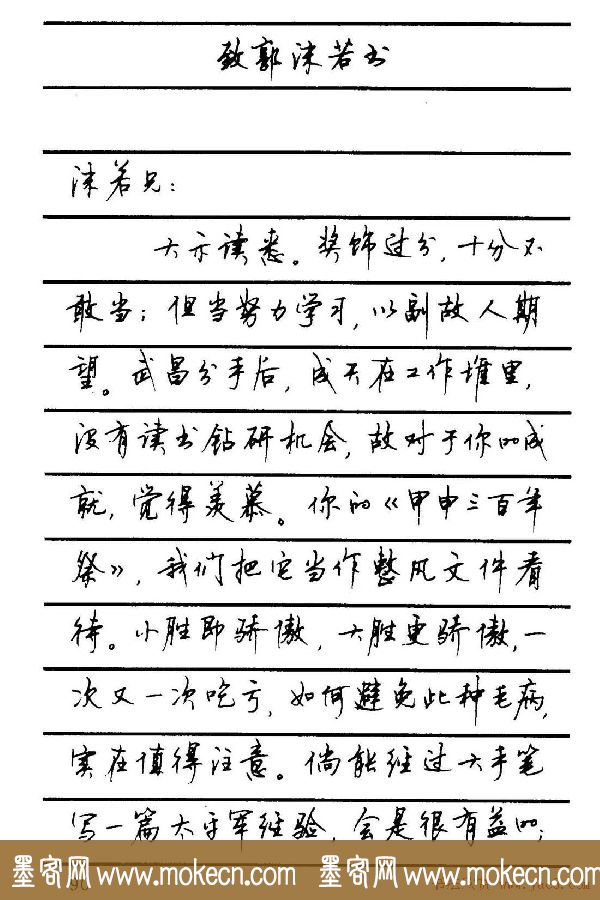 致郭沫若书
沫若兄：
大示读悉。奖饰过分，十分不
敢当；但当努力学习，以副故人期
望。武昌分手后，成天在工作堆里，
没有读书钻研机会，故对于你的成
就，觉得羡慕。你的《甲申三百年
祭》，我们把它当作整风文件看
待。小胜即骄傲，大胜更骄傲，一
次又一次吃亏，如何避免此种毛病，
实在值得注意。倘能经过大手笔
写一篇太平军经验，会是很有益的；
墨客网 www.mokecn.com 墨客网 www.mokecn.com
90